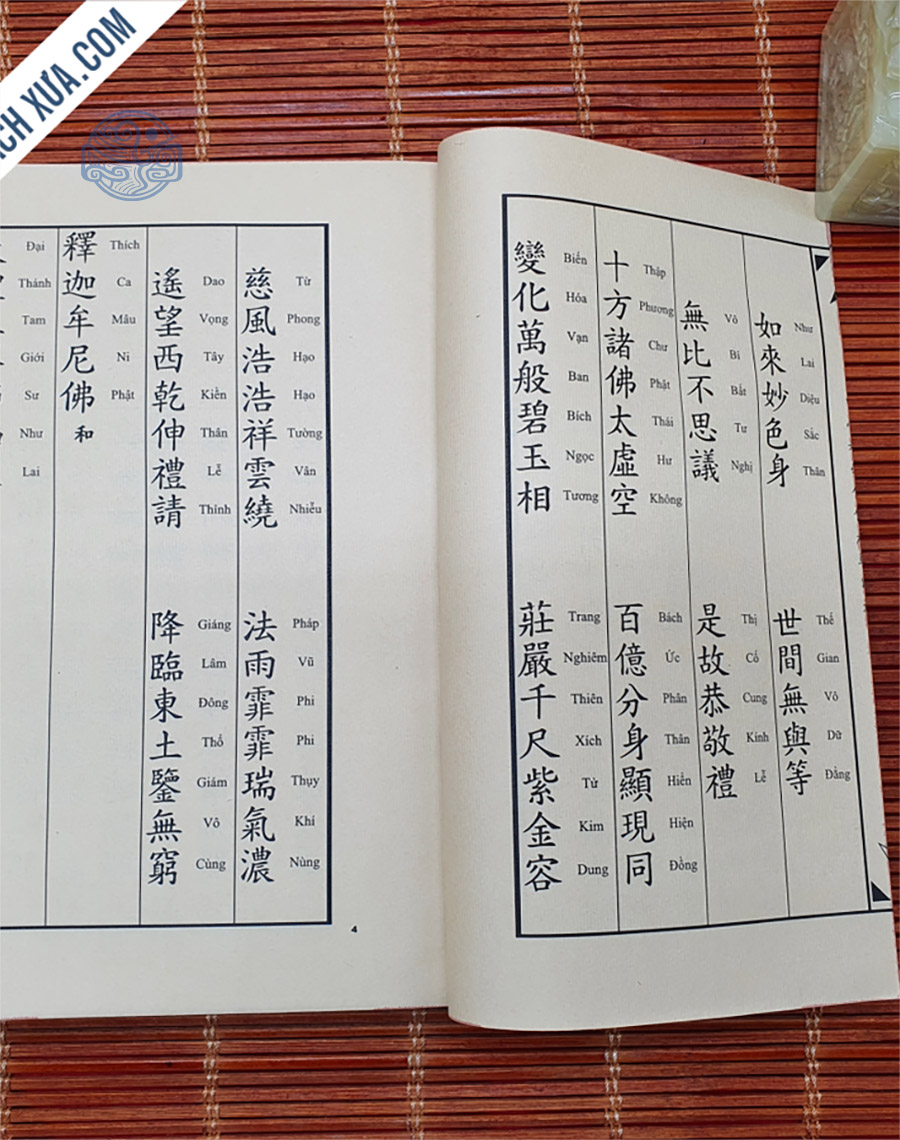 CH XƯA.COM
如來妙色身 世間無與等
Như Lai Diệu Sắc Thân Thế Gian Vô Dữ Đẳng
無比不思議 是故恭敬禮
Vô Bỉ Bất Tư Nghị Thị Cố Cung Kính Lễ
十方諸佛太虛空 百億分身顯現同
Thập Phương Chư Phật Thái Hư Không Bách Ức Phân Thân Hiển Hiện Đồng
變化萬般碧玉相 莊嚴千尺紫金容
Biến Hóa Vạn Ban Bích Ngọc Tương Trang Nghiêm Thiên Xích Tử Kim Dung
慈風浩浩祥雲繞 法雨霏霏瑞氣濃
Từ Phong Hạo Hạo Tường Vân Nhiễu Pháp Vũ Phi Phi Thụy Khí Nùng
遙望西乾伸禮請 降臨東土鑒無窮
Dao Vọng Tây Kiền Thân Lễ Thỉnh Giáng Lâm Đông Thổ Giám Vô Cùng
釋迦牟尼佛 和
Thích Ca Mâu Ni Phật
Đại Thánh Tam Giới Sư Như Lai
4